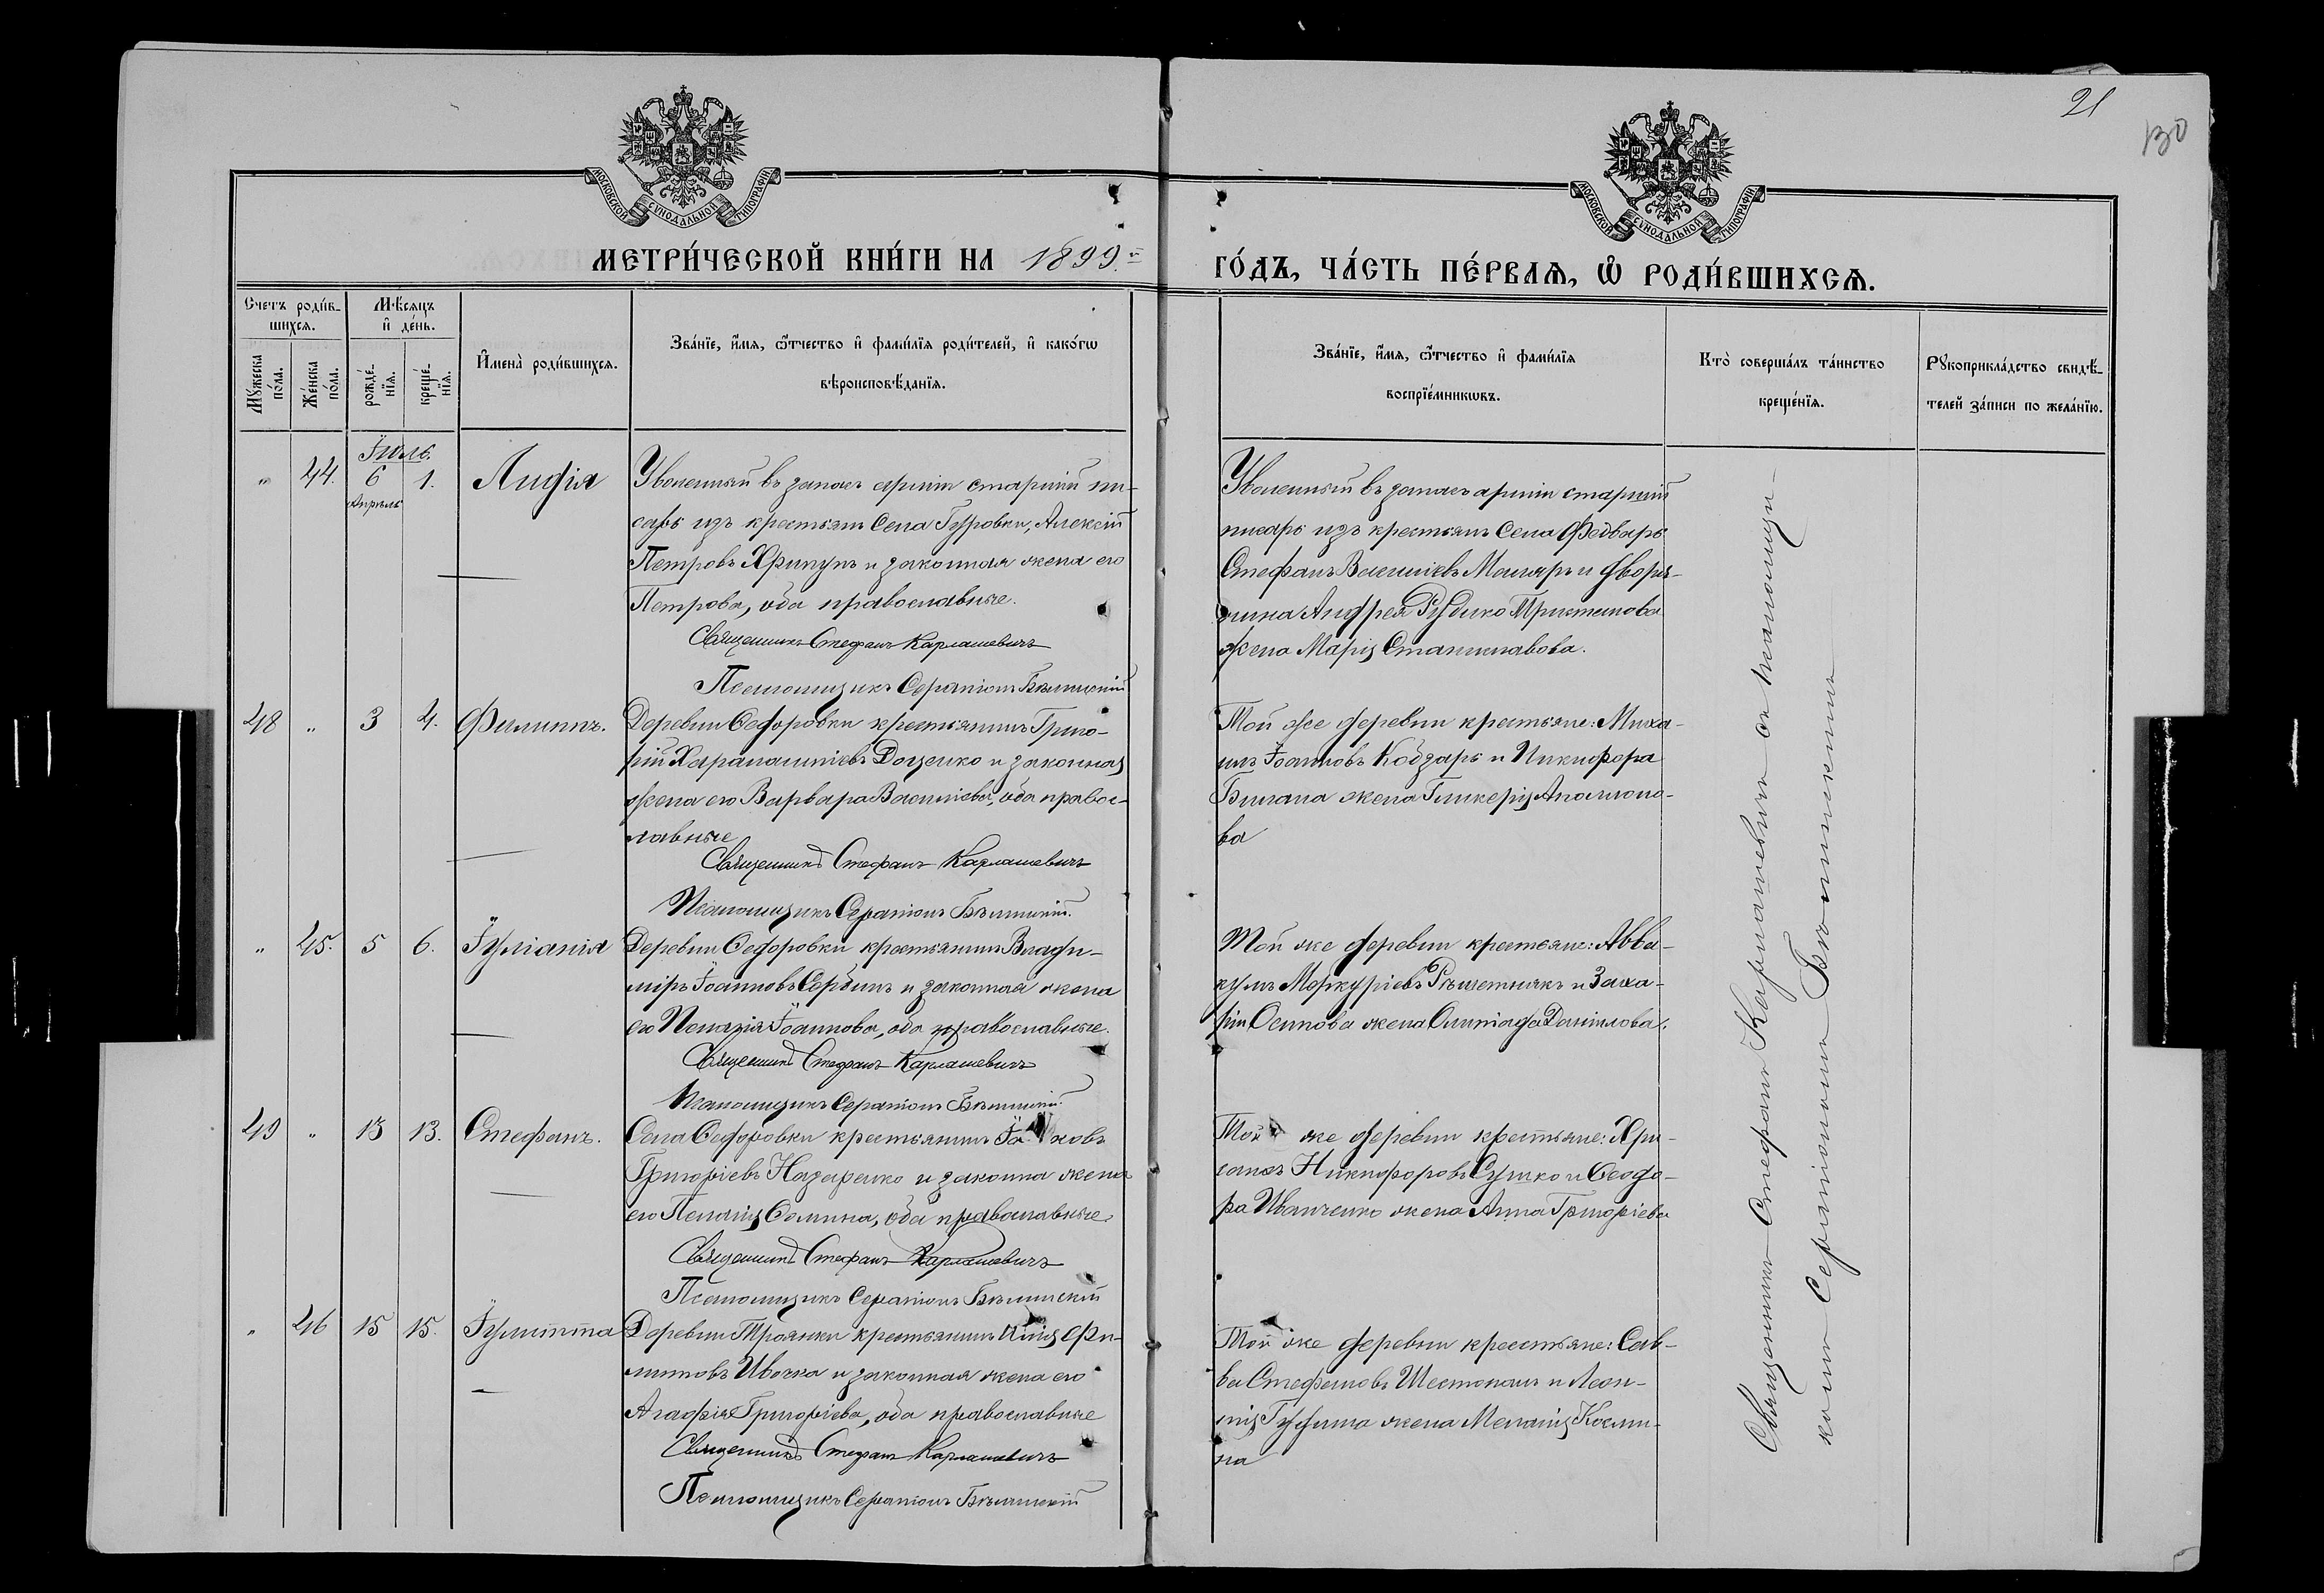 21
130
МОСКОВСКОЙ СѴНОДАЛЬНОЙ ТИПОГРАФІИ
МОСКОВСКОЙ СѴНОДАЛЬНОЙ ТИПОГРАФІИ
МЕТРИ́ЧЕСКОЙ КНИ́ГИ НА 1899.й
ГО́ДЪ, ЧА́СТЬ ПЕ́РВАѦ, Ѡ҆ РОДИ́ВШИХСѦ.
Счетъ роди́в-
шихсѧ.
Мѣ́сяцъ
и҆ де́нь.
Мꙋ́жеска
по́ла.
Же́нска
по́ла.
рожде́-
нїѧ.
креще́-
нїѧ.
И҆мена̀ роди́вшихсѧ.
Зва́нїе, и҆́мѧ, ѻ҆́тчество и҆ фамі́лїѧ роди́телей, и҆ како́гѡ
вѣроисповѣ́данїѧ.
Зва́нїе, и҆́мѧ, ѻ҆́тчество и҆ фамі́лїѧ
воспрїе́мникѡвъ.
Кто̀ соверша́лъ та́инство
креще́нїѧ.
Рꙋкоприкла́дство свидѣ́-
телей за́писи по жела́нїю.
Іюль.
" 44. 6 1. Лидія
Апрѣль
Уволенный въ запасъ арміи старшій пи-
сарь изъ крестьянъ Села Гуровки, Алексій
Петровъ Хрипунъ и законная жена его
Петрова, оба православные.
Священникъ Стефанъ Карлашевичъ
Псаломщикъ Серапіонъ Бѣлинскій
Уволенный въ запасъ арміи старшій
писарь изъ крестьянъ Села Федваръ
Стефанъ Василіевъ Маляръ и дворя-
нина Андрея Рудико
жена Марія Станиславова.
48 " 3 4. Филиппъ.
Деревни Ѳедоровки крестьянинъ Григо-
рій Харалампіевъ Доценко и законная
жена его Варвара Василіева, оба правос-
лавные
Священникъ Стефанъ Карлашевичъ
Псаломщикъ Серапіонъ Бѣлинскій.
Той же деревни крестьяне: Миха-
илъ Іоанновъ Кобзарь и Никифора
жена Гликерія Аполлоно-
ва
" 45. 5 6. Іуліанія
Деревни Ѳедоровки крестьянинъ Влади-
міръ Іоанновъ Сербинъ и законная жена
его Пелагія Іоаннова, оба православные.
Священникъ Стефанъ Карлашевичъ
Псаломщикъ Серапіонъ Бѣлинскій
Той же деревни крестьяне: Авва-
кумъ Меркуріевъ Рѣшетнякъ и Заха-
рія Осипова жена Олимпіада Даніилова.
49 " 13 13. Стефанъ.
Села Ѳедоровки крестьянинъ Іаковъ
Григоріевъ Назаренко и законна жена
его Пелагія Ѳомина, оба православные.
Священникъ Стефанъ Карлашевичъ
Псаломщикъ Серапіонъ Бѣлинскій
Той же деревни крестьяне: Хри-
санѳъ Никифоровъ Сушко и Ѳеодо-
ра Иванченко жена Анна Григоріева
" 46 15 15. Іулитта
Деревни Троянки крестьянинъ Илія Фи-
липповъ Ивочка и законная жена его
Агафія Григоріева, оба православные
Священникъ Стефанъ Карлашевичъ
Псаломщикъ Серапіонъ Бѣлинскій
Той же деревни крестьяне: Сав-
ва Стефановъ Шестопалъ и Леон-
тія жена Меланія Косми-
на
Священникъ Стефанъ Карлашевичъ съ псаломщи-
комъ Серапіономъ Бѣлинскимъ